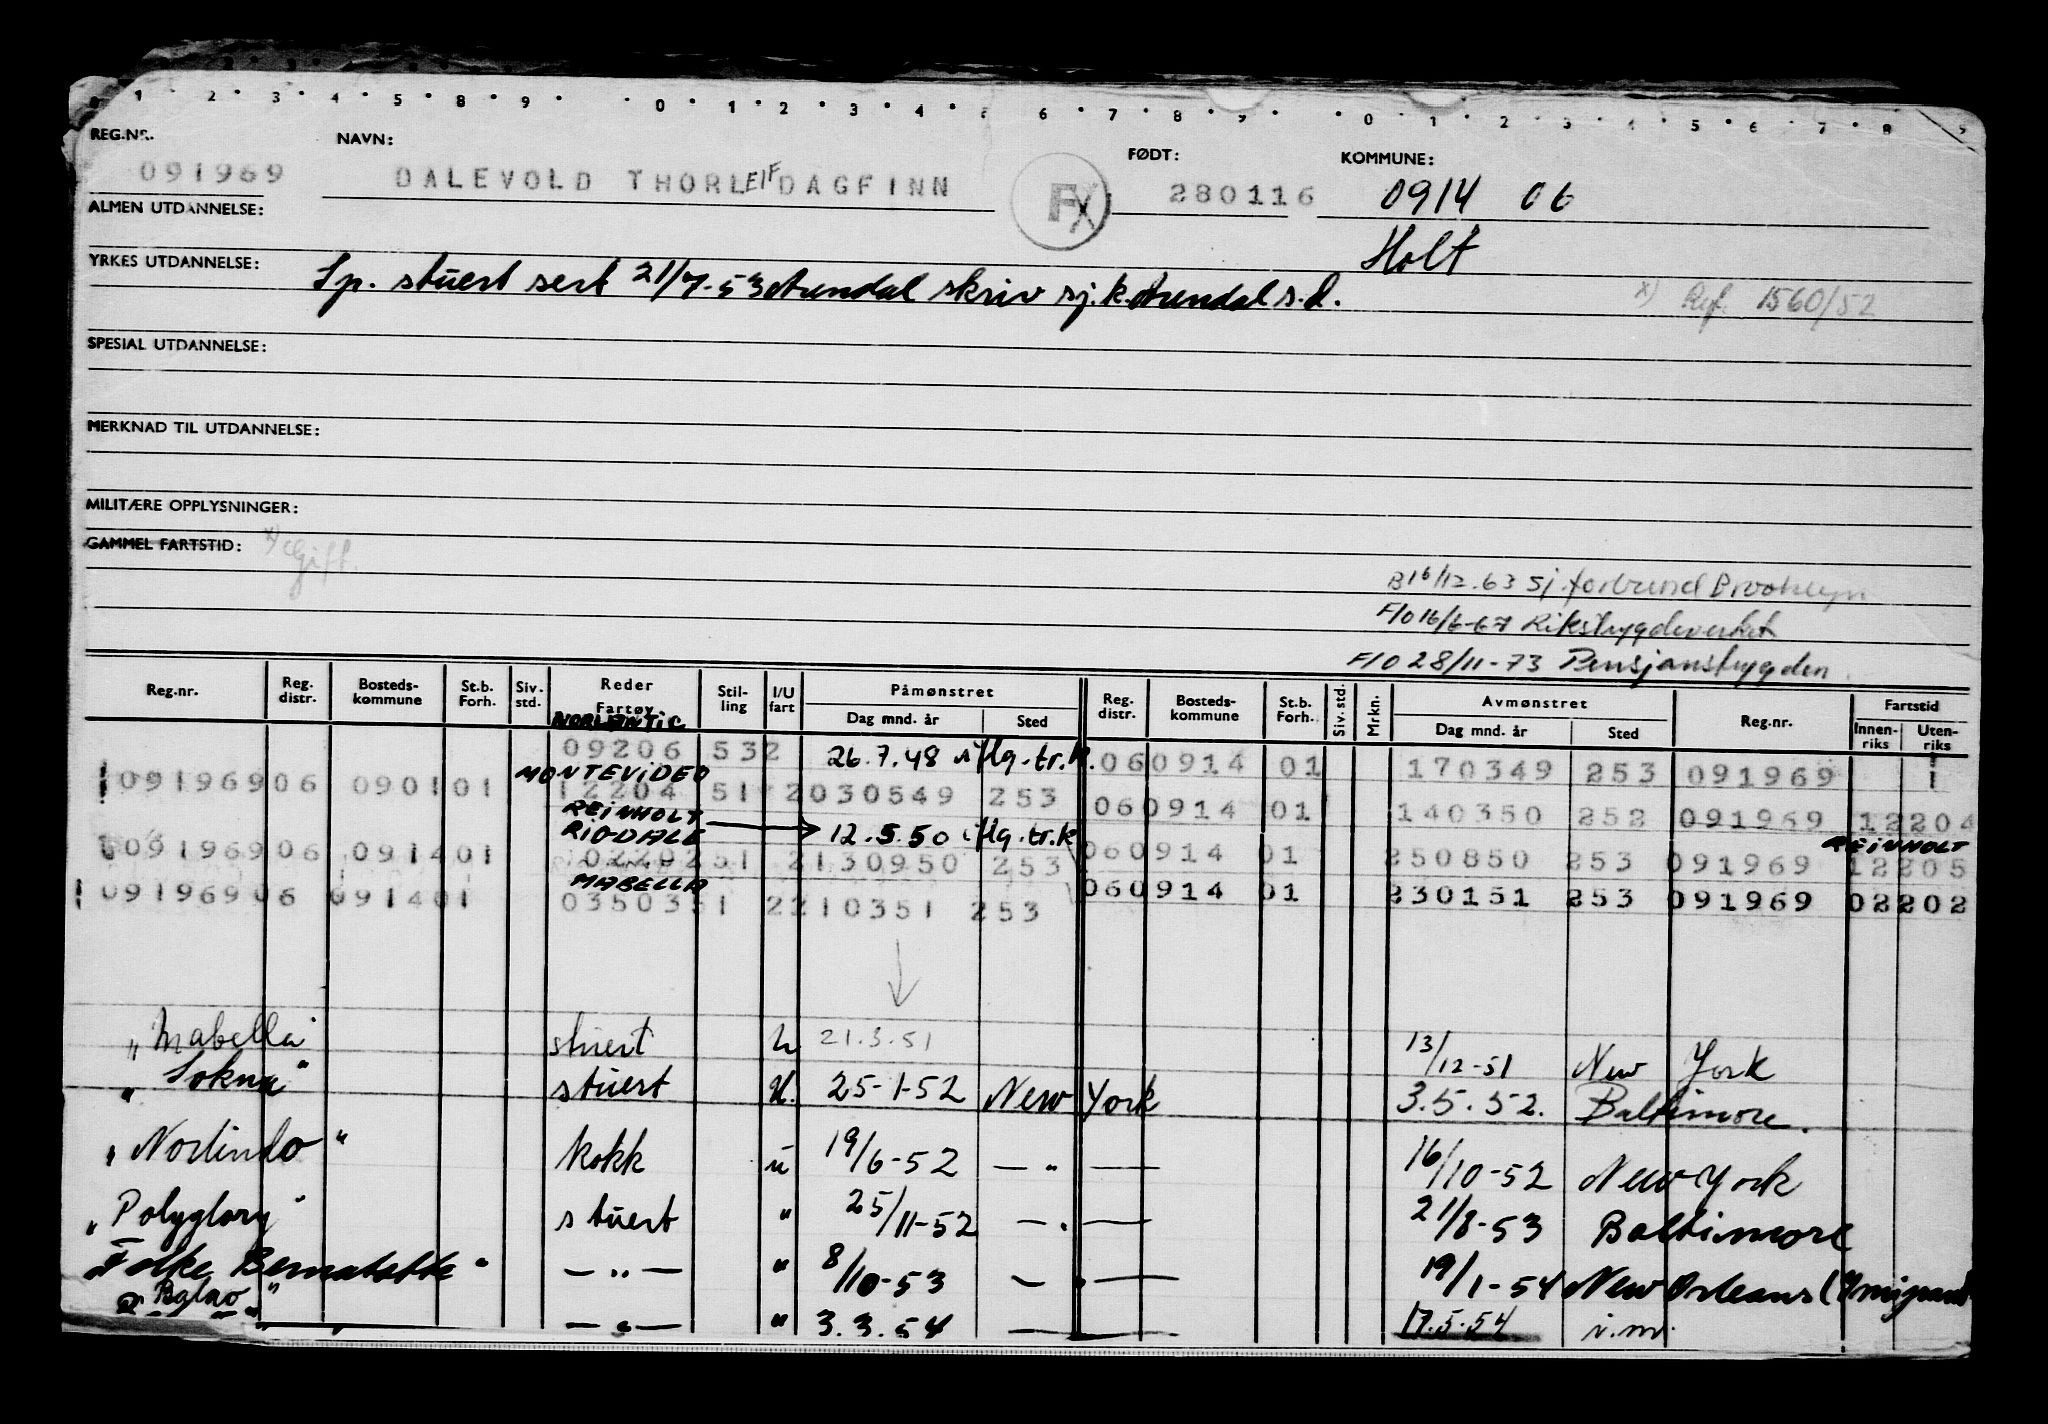 0 1 2 3 4 5 8 9 0 1 2 3 4 5 6 7 8 9 0 1 2 3 4 5 6 7 8 9
REG.NR. NAVN: FØDT: KOMMUNE:
091969 DALEVOLD THORLEIF DAGFINN FX 280116 0914 06
ALMEN UTDANNELSE: Holt
YRKES UTDANNELSE: Sp. stuert sert 21/7-53 Arendal skriv sj.k. Arendal s.d. x) Ref. 1560/52
SPESIAL UTDANNELSE:
MERKNAD TIL UTDANNELSE:
MILITÆRE OPPLYSNINGER:
GAMMEL FARTSTID: x) Gift.
B 16/12.63 Sj. forbund Brooklyn
F/O 16/6-67 Rikstrygdeverket
F/O 28/11-73 Pensjonstrygden
Reg.nr. Reg. distr. Bosteds-kommune St.b. Forh. Siv. std. Reder Fartøy Stil-ling I/U fart Påmønstret Dag mnd. år Sted Reg. distr. Bosteds-kommune St.b. Forh. Siv. std. Mrkn. Avmønstret Dag mnd. år Sted Reg.nr. Fartstid Innen-riks Uten-riks
NORLANTIC
09206 532 26.7.48 iflg.tr.k. 060914 01 170349 253 091969 1
MONTEVIDEO
1 09196906 090101 12204 51 2030549 253 060914 01 140350 252 091969 12204
REINHOLT
RIODALE 12.5.50 iflg.tr.k REINHOLT
09196906 091401 0220251 2130950 253 060914 01 250850 253 091969 12205
MABELLA
1 09196906 091401 0350351 2210351 253 060914 01 230151 253 091969 02202
"Mabella" stuert U 21.3.51 13/12-51 New York
"Sokna" stuert U. 25-1-52 New York 3.5.52. Baltimore.
"Norlindo" kokk u 19/6-52 — " — 16/10-52 New York
"Polyglory" stuert " 25/11-52 — " — 21/8-53 Baltimore
"Folke Bernadotte" — " — " 8/10-53 — " — 19/1-54 New Orleans
"Balao" — " — " 3.3.54 — 17.5.54 i.m.